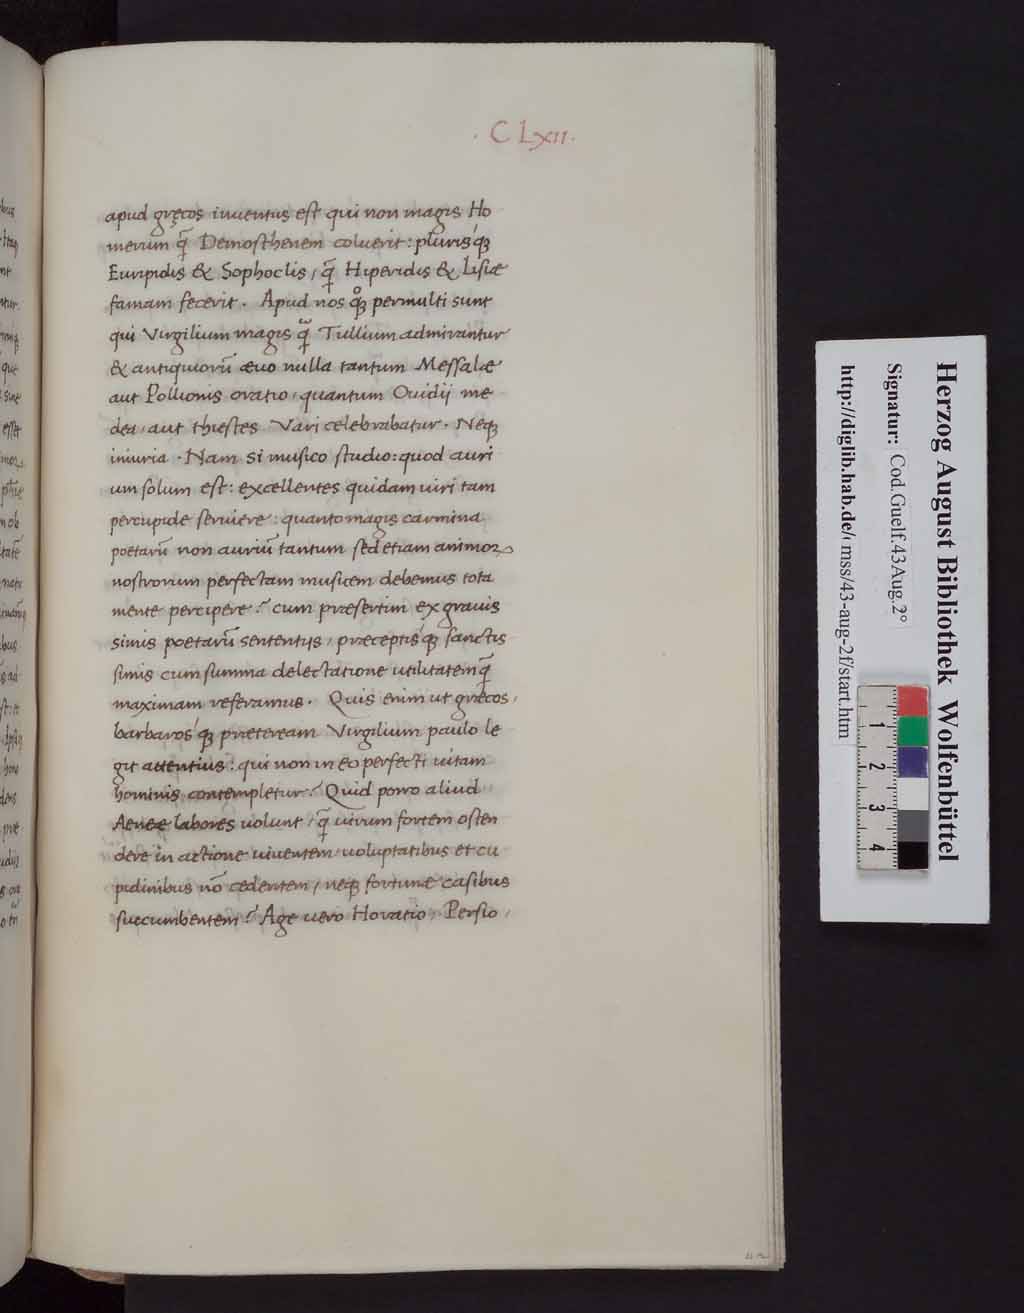 · C Lxii ·
apud gręcos inuentus est qui non magis Ho
merum q̃ Demosthenem coluerit: pluris'q;
Euripidis & Sophoclis, q̃ Hiperidis & Lisiæ
famam fecerit. Apud nos q̊q; permulti sunt
qui Virgilium magis q̃ Tullium admirantur
& antiquiorũ æuo nulla tantum Messalæ
aut Pollionis oratio, quantum Ouidij me
dea, aut thiestes Vari celebrabatur. Neq;
iniuria. Nam si musico studio: quod auri
um solum est: excellentes quidam uiri tam
percupide seruiere: quanto magis carmina
poetarũ non auriũ tantum sed etiam animoꝝ
nostrorum perfectam musicem debemus tota
mente percipere? cum præsertim ex grauis
simis poetarũ sententijs, præceptis'q; sanctis
simis cum summa delectatione utilitatemq̃
maximam referamus. Quis enim ut græcos,
barbaros'q; præteream Virgilium paulo le
git attentius: qui non in eo perfecti uitam
hominis contempletur? Quid porro aliud
Aeneæ labores uolunt, q̃ uirum fortem osten
dere in actione uiuentem uoluptatibus et cu
pidinibus nõ cedentem, neq; fortunæ casibus
succumbentem? Age uero Horatio, Persio,
Herzog August Bibliothek Wolfenbüttel
Signatur: Cod.Guelf.43 Aug.2°
http://diglib.hab.de/ mss/43-aug-2f/start.htm
1
2
3
4